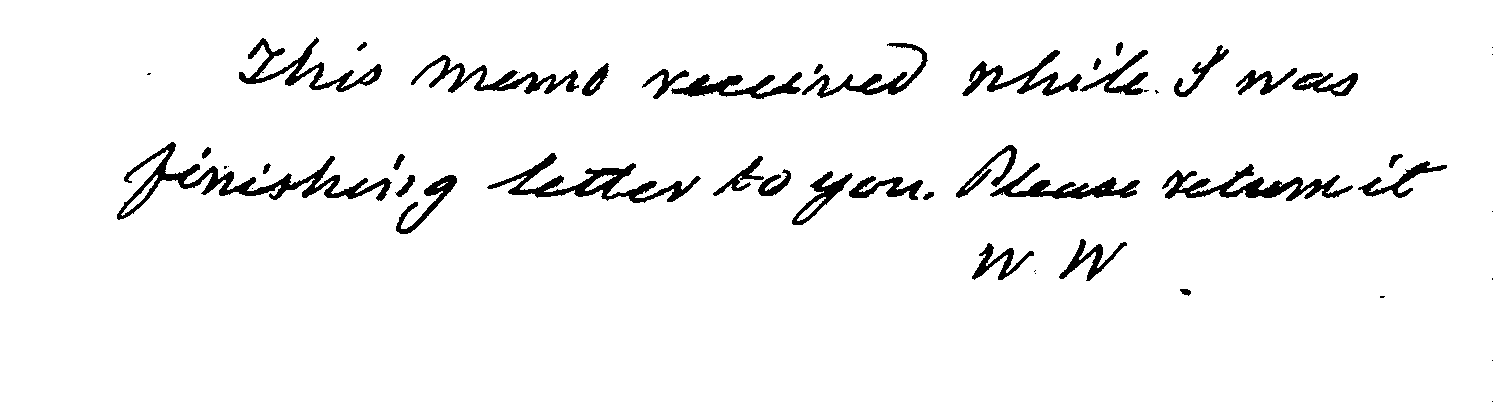 This memo received while I was
finishing letter to you. Please return it
W. W